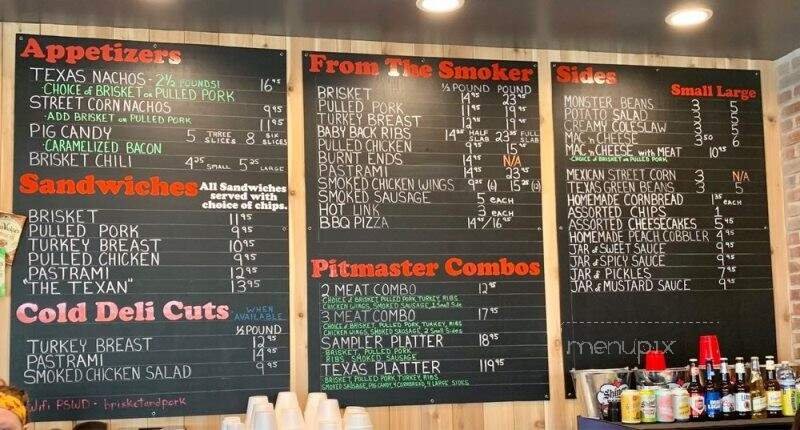 Appetizers
TEXAS NACHOS - 2½ POUNDS! 16⁹⁵
- CHOICE OF BRISKET OR PULLED PORK
STREET CORN NACHOS 9⁹⁵
- ADD BRISKET OR PULLED PORK 11⁹⁵
PIG CANDY 5 THREE SLICES 8 SIX SLICES
- CARAMELIZED BACON
BRISKET CHILI 4²⁵ SMALL 5²⁵ LARGE
Sandwiches All Sandwiches served with choice of chips.
BRISKET 11⁹⁵
PULLED PORK 9⁹⁵
TURKEY BREAST 10⁹⁵
PULLED CHICKEN 9⁹⁵
PASTRAMI 12⁹⁵
"THE TEXAN" 13⁹⁵
Cold Deli Cuts WHEN AVAILABLE
½ POUND
TURKEY BREAST 12⁹⁵
PASTRAMI 14⁹⁵
SMOKED CHICKEN SALAD 9⁹⁵
Wifi PSWD - brisketandpork
From The Smoker
½ POUND POUND
BRISKET 14⁹⁵ 23⁹⁵
PULLED PORK 11⁹⁵ 19⁹⁵
TURKEY BREAST 12⁹⁵ 19⁹⁵
BABY BACK RIBS 14²⁵ HALF SLAB 23²⁵ FULL SLAB
PULLED CHICKEN 9⁹⁵ 15⁹⁵
BURNT ENDS 14⁹⁵ N/A
PASTRAMI 14⁹⁵ 23⁹⁵
SMOKED CHICKEN WINGS 9²⁵ 15²⁵
SMOKED SAUSAGE 5 EACH
HOT LINK 3 EACH
BBQ PIZZA 14⁹⁵/16⁹⁵
Pitmaster Combos
2 MEAT COMBO 12⁹⁵
CHOICE OF BRISKET, PULLED PORK, TURKEY, RIBS
CHICKEN WINGS, SMOKED SAUSAGE, 1 Small Side
3 MEAT COMBO 17⁹⁵
CHOICE OF BRISKET, PULLED PORK, TURKEY, RIBS
CHICKEN WINGS, SMOKED SAUSAGE, 2 Small Sides
SAMPLER PLATTER 18⁹⁵
BRISKET, PULLED PORK,
RIBS, SMOKED SAUSAGE
TEXAS PLATTER 119⁹⁵
BRISKET, PULLED PORK, TURKEY, RIBS,
SMOKED SAUSAGE, PIG CANDY, 4 CORNBREAD, 4 LARGE SIDES
Sides
Small Large
MONSTER BEANS 3 5
POTATO SALAD 3 5
CREAMY COLESLAW 3 5
MAC 'N CHEESE 3⁵⁰ 6
MAC 'N CHEESE WITH MEAT 10⁹⁵
- CHOICE OF BRISKET OR PULLED PORK
MEXICAN STREET CORN 3 N/A
TEXAS GREEN BEANS 3 5
HOMEMADE CORNBREAD 1²⁵ EACH
ASSORTED CHIPS 1
ASSORTED CHEESECAKES 5⁹⁵
HOMEMADE PEACH COBBLER 4⁹⁵
JAR OF SWEET SAUCE 9⁹⁵
JAR OF SPICY SAUCE 9⁹⁵
JAR OF PICKLES 7⁹⁵
JAR OF MUSTARD SAUCE 9⁹⁵
menupix